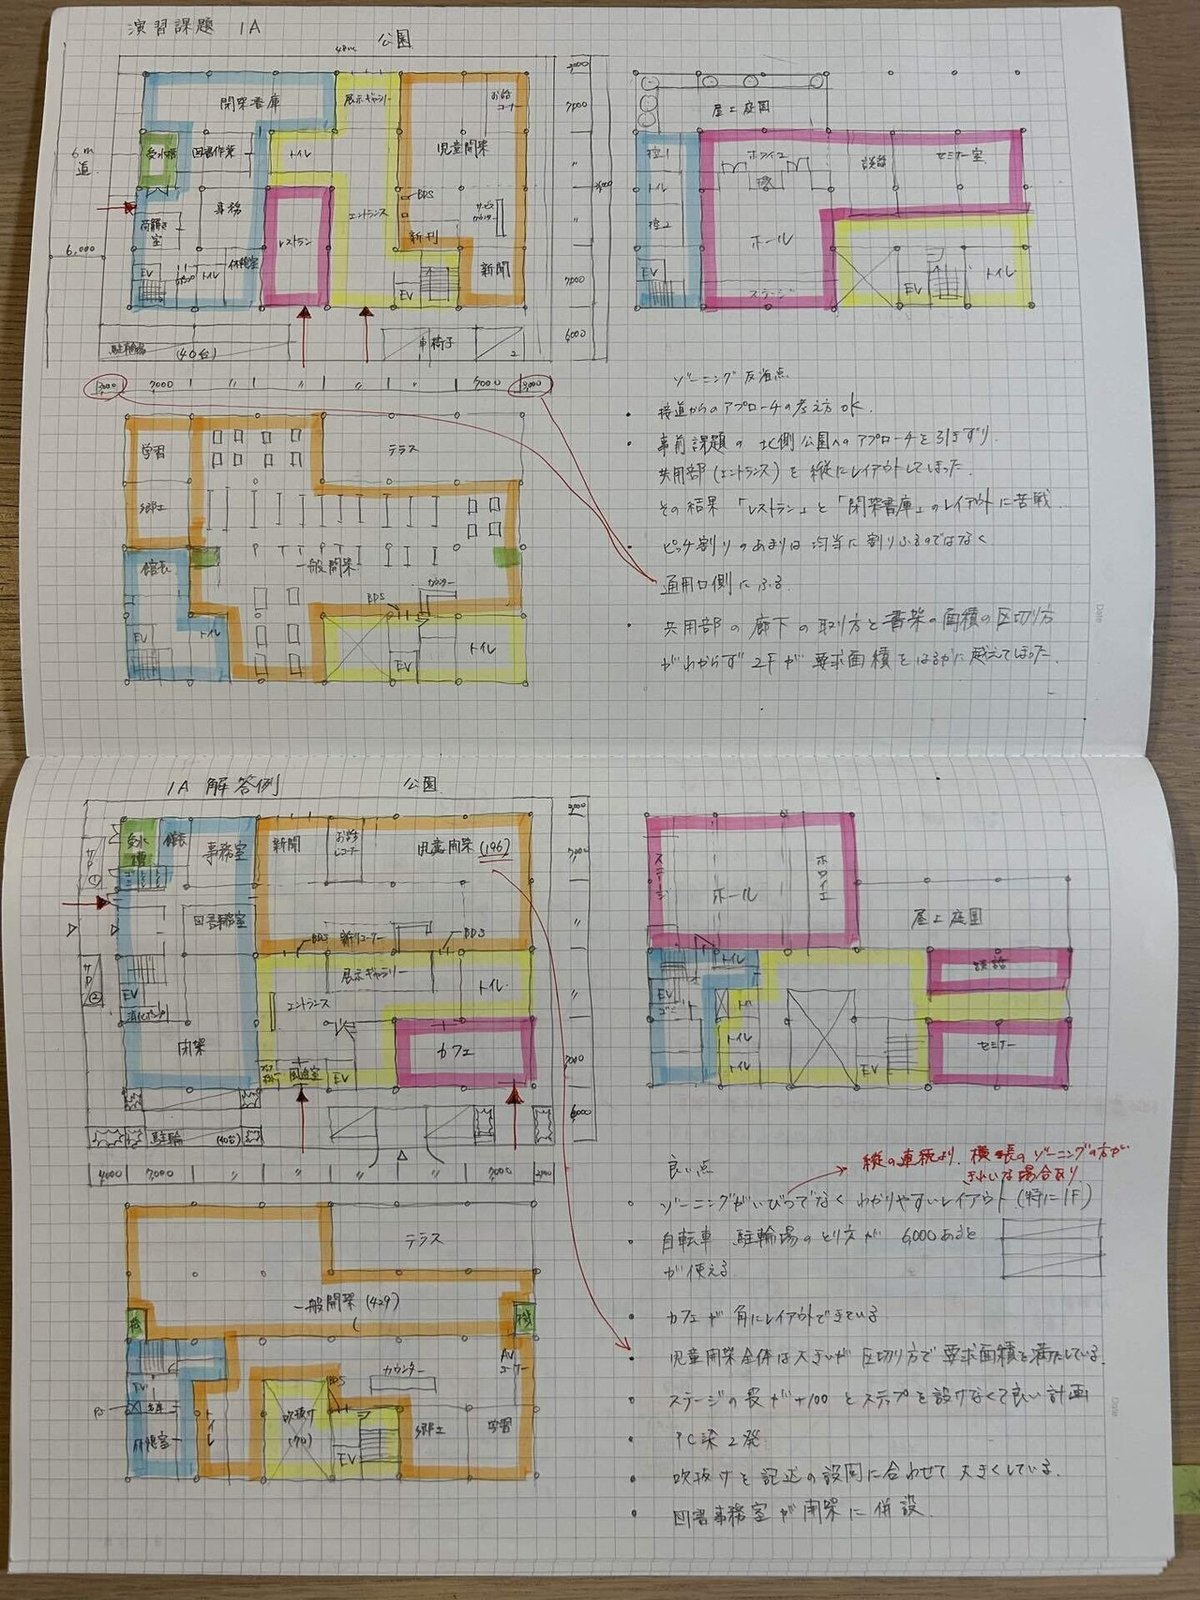 演習課題 1A
公園
閉架書庫
展示ギャラリー
お話
コーナー
受水槽
図書作業
トイレ
児童開架
6m
道
事務
BDS
エントランス
サービス
カウンター
荷解き
室
レストラン
新刊
新聞
休憩室
EV
トイレ
EV
6,000
駐輪場
(40台)
車椅子
2
7,000
〃
7000
6,000
3,000
7,000
〃
〃
〃
7,000
3,000
屋上庭園
控1
ホワイエ
談話
セミナー室
トイレ
控2
ホール
EV
ステージ
EV
トイレ
学習
テラス
郷土
一般開架
館長
カウンター
BDS
トイレ
EV
EV
トイレ
ゾーニング反省点
・接道からのアプローチの考え方OK.
・事前課題の北側公園へのアプローチを引きずり.
共用部(エントランス)を縦にレイアウトしてしまった.
その結果「レストラン」と「閉架書庫」のレイアウトに苦戦.
・ピッチ割りのあまりは均当に割りふるのではなく
通用口側にふる.
・共用部の廊下の取り方と書架の面積の区切り方
がわからず2Fが要求面積をはるかに越えてしまった.
1A 解答例
公園
受水槽
館長
事務室
新聞
お話
コーナー
児童開架(196)
サP①
図書事務室
BDS
新刊コーナー
BDS
展示ギャラリー
トイレ
サP②
EV
エントランス
消火ポンプ
閉架
カフェ
風除室
EV
駐輪
(40台)
7,000
〃
7000
6,000
4000
7,000
〃
〃
〃
7,000
2,000
ステージ
ホール
ホワイエ
屋上庭園
トイレ
談話
EV
トイレ
トイレ
EV
セミナー
テラス
一般開架(429)
機
機
AV
コーナー
カウンター
EV
BDS
PS
倉庫
休憩室
トイレ
吹抜け
(70)
EV
郷土
学習
良い点
縦の連続より、横長のゾーニングの方が
きれいな場合あり
・ゾーニングがいびつでなくわかりやすいレイアウト(特に1F)
・自転車 駐輪場のとり方が 6,000あると
が使える
・カフェが角にレイアウトできている
・児童開架全体は大きいが区切り方で要求面積を満たしている.
・ステージの長が+100とステップを設けなくて良い計画
・PC梁2発
・吹抜けを記述の設問に合わせて大きくしている.
・図書事務室が閉架に併設.